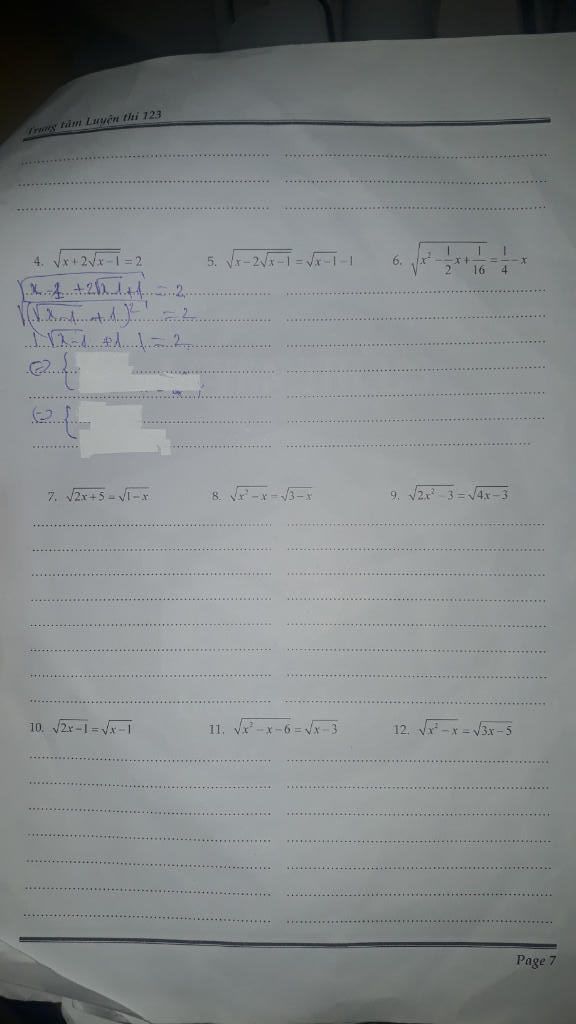 Trung tâm Luyện thi 123
4. √(x+2√(x−1)) = 2
5. √(x−2√(x−1)) = √(x−1)−1
6. √(x² − 1/2 x + 1/16) = 1/4 − x
√(x−1 +2√(x−1)+1) = 2
√((√(x−1) +1)²) = 2
|√(x−1) +1| = 2
⇔ {
⇔ {
7. √(2x+5) = √(1−x)
8. √(x²−x) = √(3−x)
9. √(2x²−3) = √(4x−3)
10. √(2x−1) = √(x−1)
11. √(x²−x−6) = √(x−3)
12. √(x²−x) = √(3x−5)
Page 7